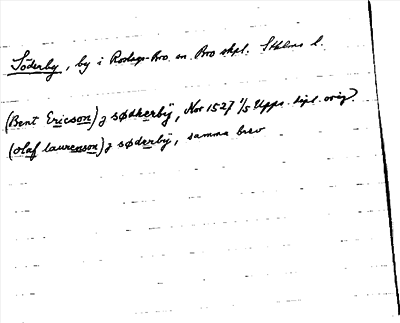 Söderby, by i Rodags-Bro sn. Bro skpl. Sthlms l.
(Bent Ericson) j sødherbÿ, Nor 1527 1/5 Upps. dipl. orig.
(olaf laurenson) j søderbÿ, samma brev